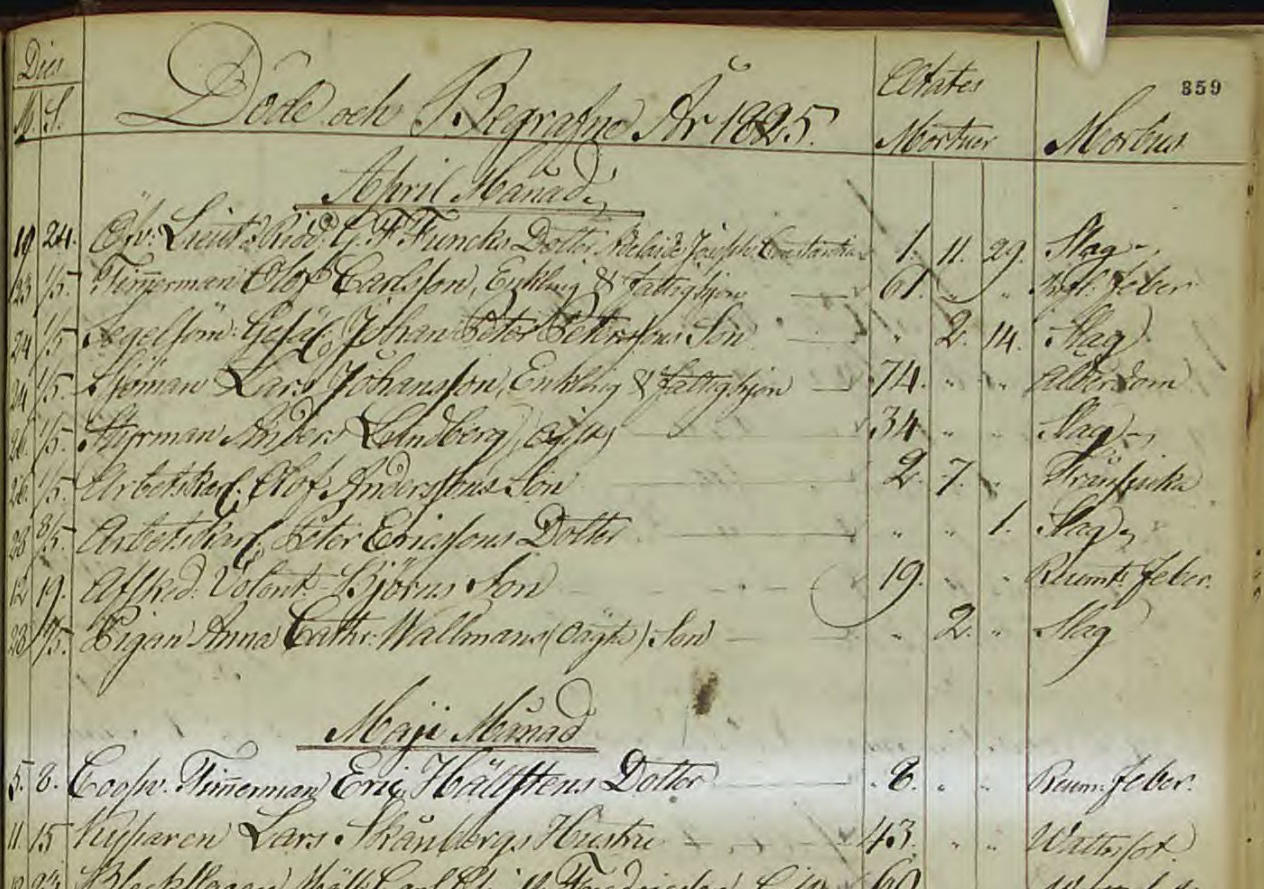 Dies Ætates 359
M. S. Döde och Begrafne År 1825. Mortuor Morbus
April Månad
19 24. Öfv: Lieut: o Ridd: G. F. Funcks Dotter Adelaide Joseph: Constantia 1. 11. 29. Slag
23 1/5. Timmerman Olof Carlsson, Enkling & fattighjon 61. " " feber
24 1/5 Segelsöm: Gesäl Johan Peter Petterssons Son " 2. 14. Slag
24 1/5. Sjöman Lars Johansson, Enkling & fattighjon 74. " " Ålderdom
26. 1/5. Styrman Anders Lundberg, ogift 34 " " Slag
26. 1/5. Arbetskarl. Olof Anderssons Son 2. 7. " Fråssjuka
28 8/5. Arbetskarl. Peter Ericssons Dotter " " 1. Slag
12 19. Afsked. Volont. Björns Son 19. " Reumt: feber.
28 /5. Pigan Anna Cathr: Wallmans (Oägta) Son " 2. " Slag
Maji Månad
5. 8. Coopv. Timmerman Eric Hällstens Dotter 8. " " Reum: feber.
11. 15 Lars Skånbergs Hustru 43. " " Wattusot.
23. 60